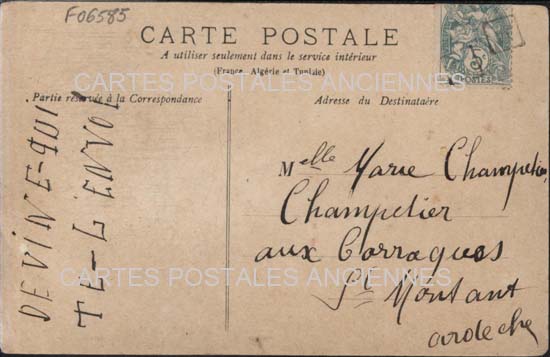 F06585
CARTE POSTALE
A utiliser seulement dans le service intérieur
(France, Algérie et Tunisie)
CARTES POSTALES ANCIENNES
Partie réservée à la Correspondance
Adresse du Destinataire
DEVINE-QUI
TE-L'ENVOI
Melle Marie Champetier
Champetier
aux Barraques
CARTES POSTALES ANCIENNES
St Montant
ardeche
5
POSTES